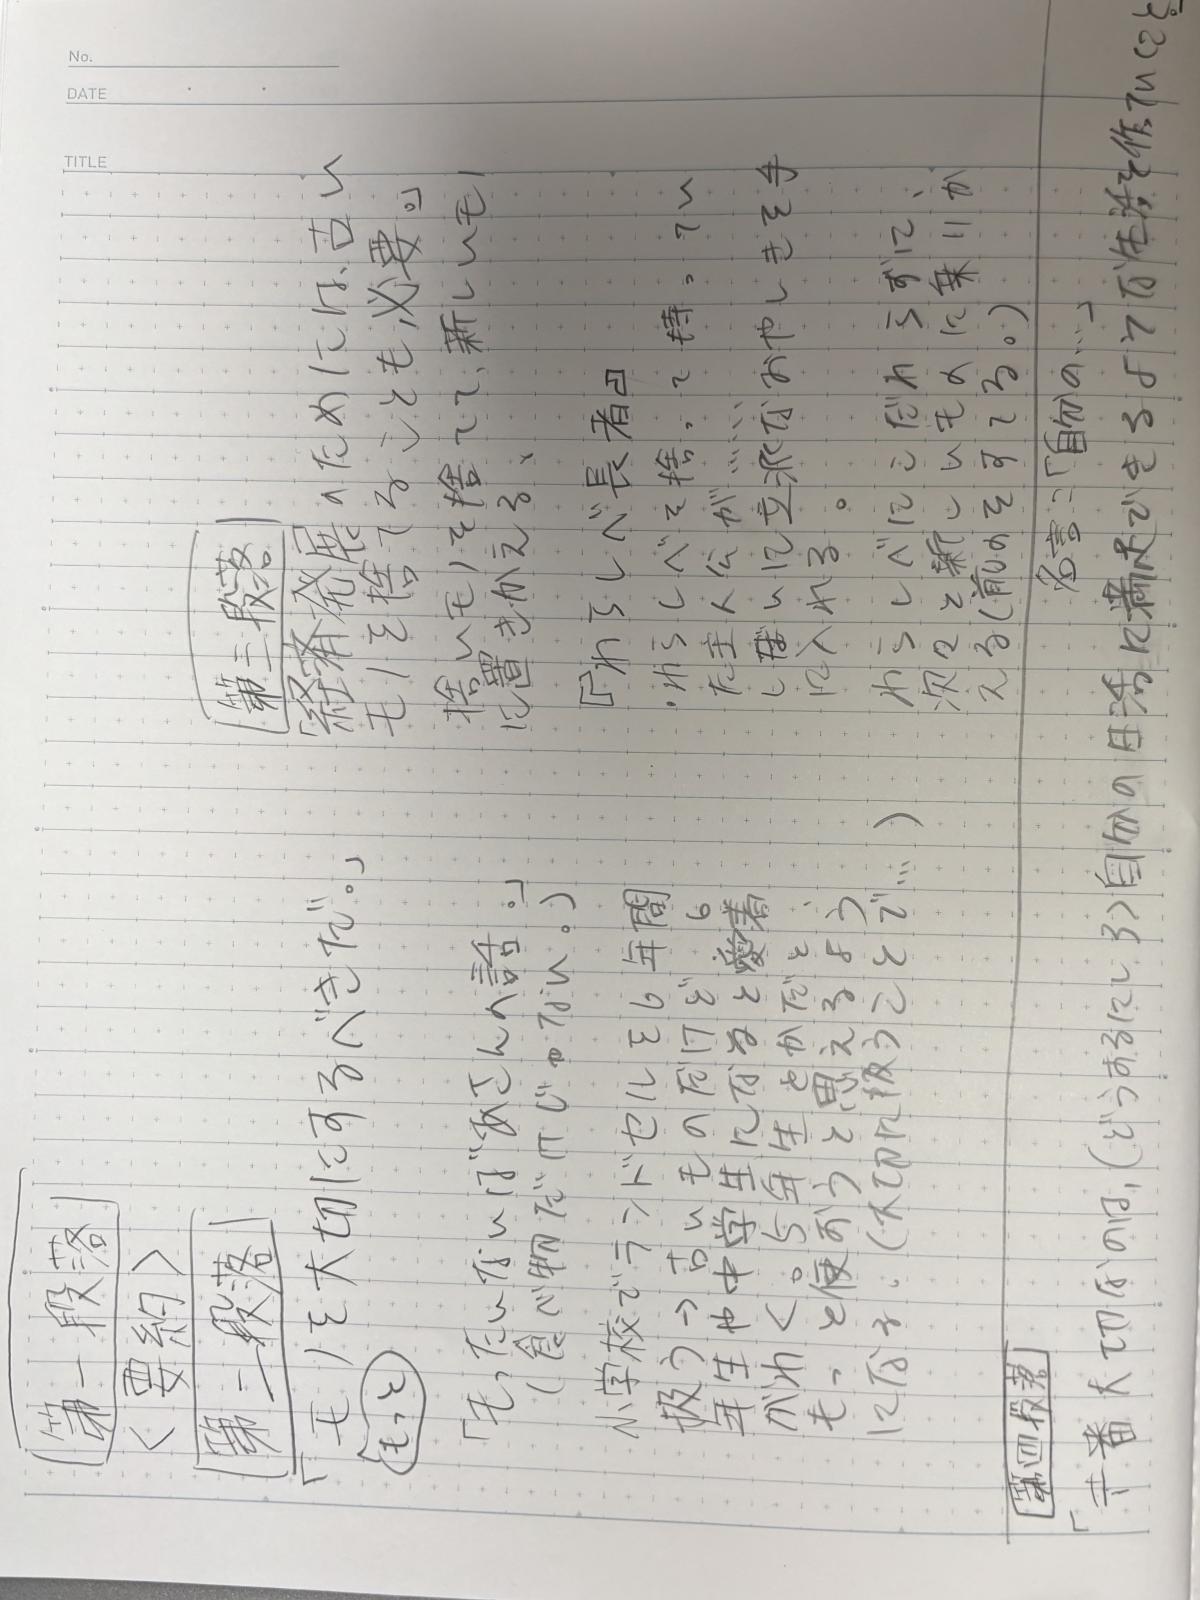 No.
DATE
TITLE
第一段落
<要約>
第二段落
「モノを大切にするべきだ。」
「もったいないばあさんの話。」
(食べ物だけじゃない。)
小学校でランドセルを6年間
扱う→古いものだけど6
年生や中学生になると愛着
がわく。5年生とかだと、
もっと使おうと思えるよう
になる。(大切に扱うことで…)
第三段落
「経済発展のためには、古い
モノを捨てることも必要。」
捨いモノを捨てて、新しいモノ
に置きかえる、
『わらしべ長者』
・わらしべを捨って持ってい
た主人公が……
しまいに立派なおやしきを手
に入れる。
わらしべにこだわらずに、
次々と新しいものに乗りか
える(前のをすてる。)
第四段落
名言:「自分の…」
「一番大切なのは、(どうするにしろ)自分の生活に満足できるような生活を送ること